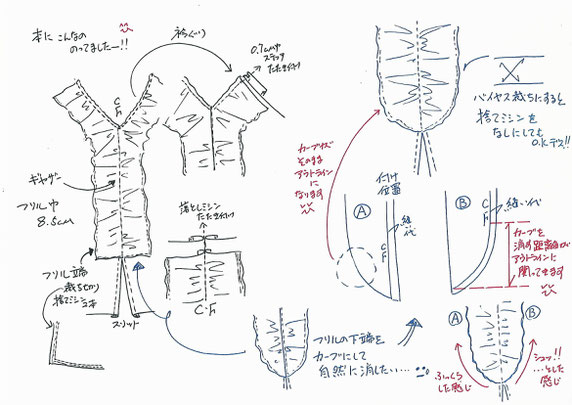 本に こんなの
のってましたー!!
衿ぐり
0.1cmｻ
ステッチ
たたき付け
CF
ギャザー
フリル巾
8.5cm
フリル端
裁ち切り
捨てミシン
スリット
落としミシン
たたき付け
C・F
バイヤス裁ちにすると
捨てミシンを
なしにしても
O.Kデス!!
カーブが
そのまま
アウトライン
になります
付け
位置
Ⓐ
縫い代
CF
Ⓑ
CF
縫い代
カーブを
消す距離が
アウトラインに
関ってきます
フリルの下端を
カーブにして
自然に消したい…
Ⓐ
Ⓑ
ふっくら
した感じ
シュッ!!
…とした
感じ